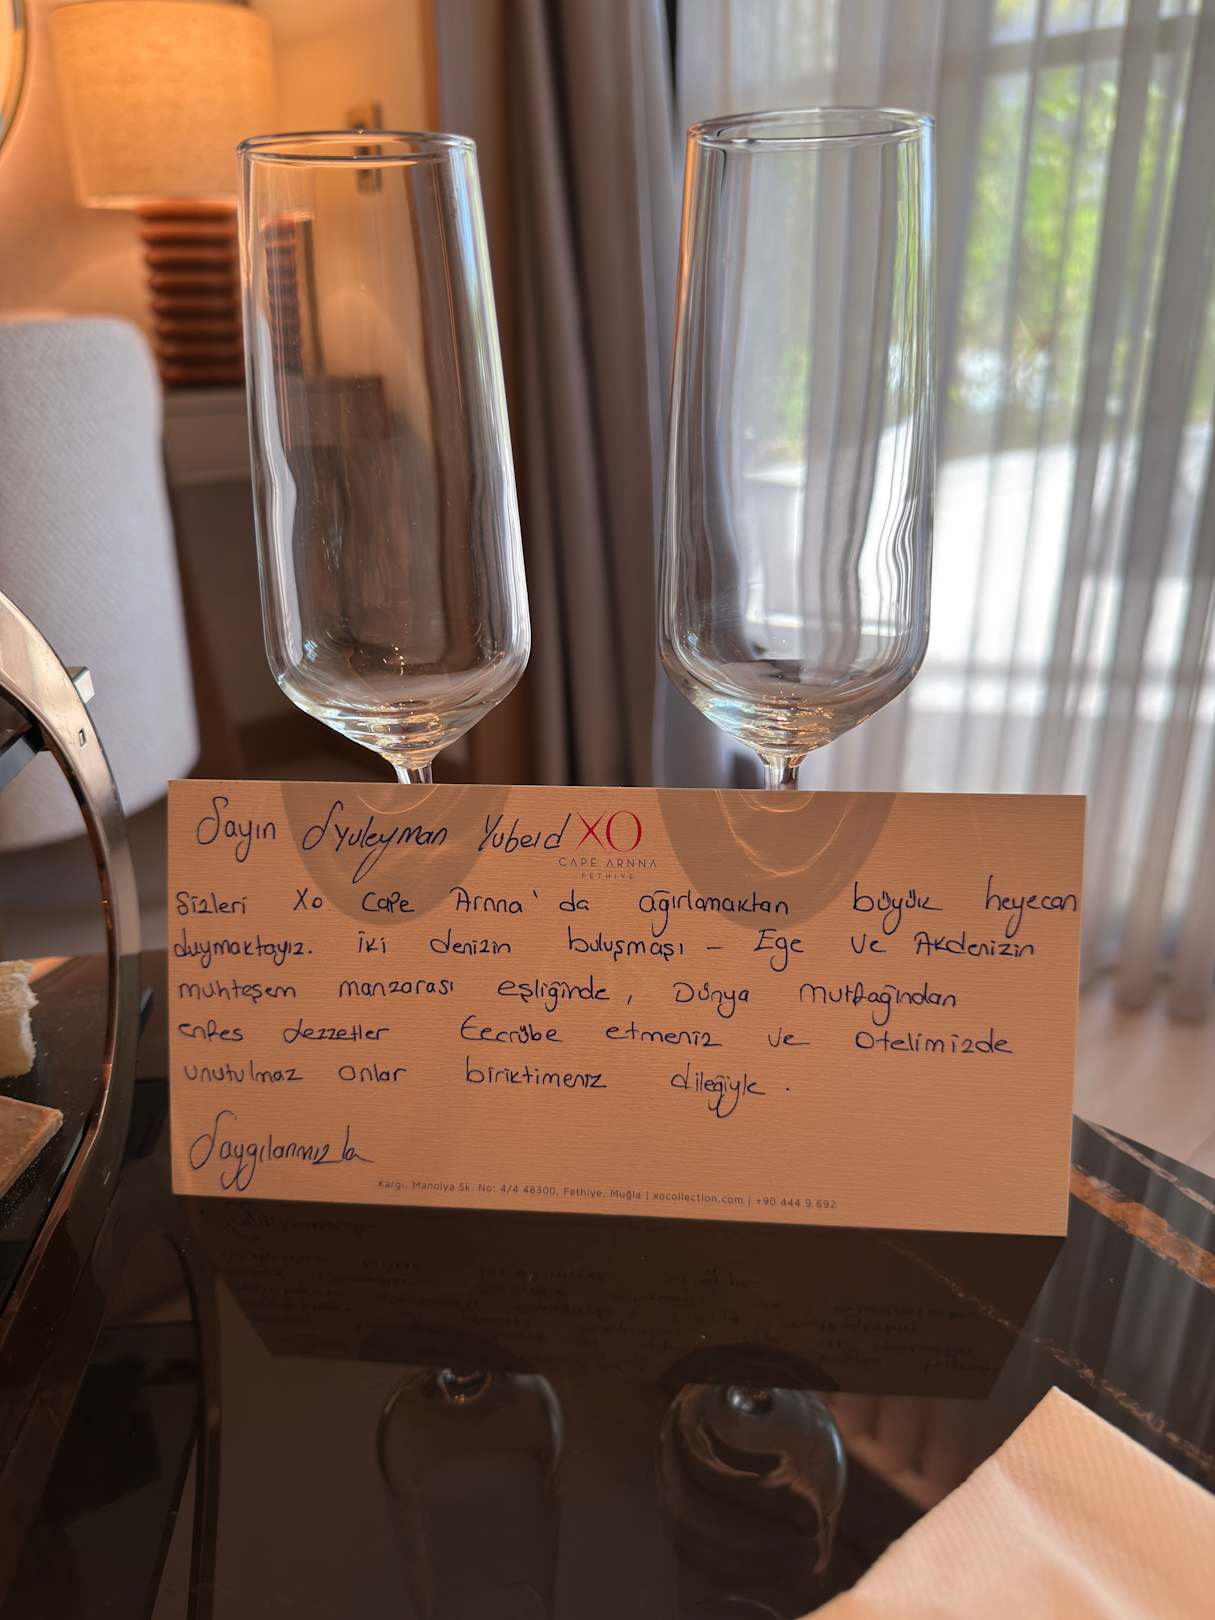 Sayın Syuleyman Yubeıd
XO
CAPE ARNNA
FETHİYE
Sizleri Xo Cape Arnna'da ağırlamaktan büyük heyecan
duymaktayız. İki denizin buluşması – Ege ve Akdenizin
muhteşem manzarası eşliğinde, Dünya mutfağından
enfes lezzetler tecrübe etmeniz ve otelimizde
unutulmaz anlar biriktirmeniz dileğiyle.
Saygılarımızla
Kargı, Manolya Sk. No: 4/4 48300, Fethiye, Muğla | xocollection.com | +90 444 9 692